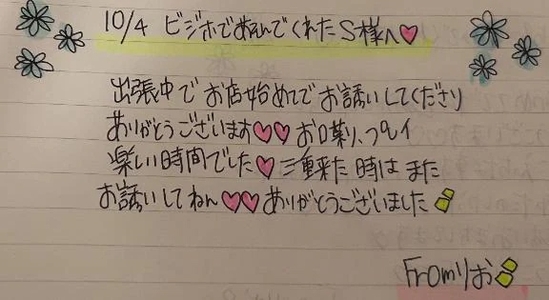 10/4 ビジホであそんでくれたS様へ♡
出張中でお店始めてでお誘いしてくださり
ありがとうございます♡♡ お口喋り、プレイ
楽しい時間でした♡ 三重来た時は また
お誘いしてねん♡♡ ありがとうございました
Fromりお